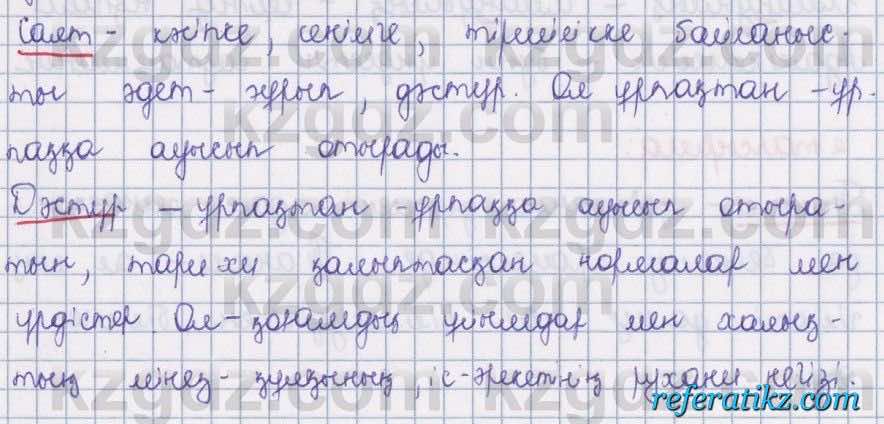 Салт - кәсіпке, сенімге, тіршілікке байланыс-
ты әдет - ғұрып, дәстүр. Ол ұрпақтан - ұр-
паққа ауысып отырады.
Дәстүр – ұрпақтан - ұрпаққа ауысып отыра-
тын, тарихи қалыптасқан нормалар мен
үрдістер. Ол - қоғамдық ұйымдар мен халық-
тың мінез - құлқының, іс-әрекетінің рухани негізі.
referatikz.com